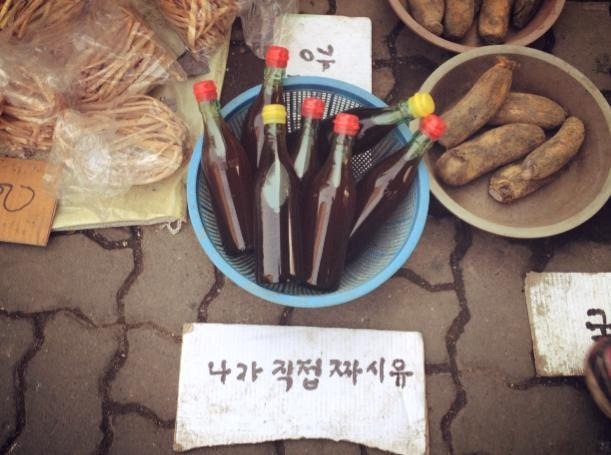 나가 직접 짜시유